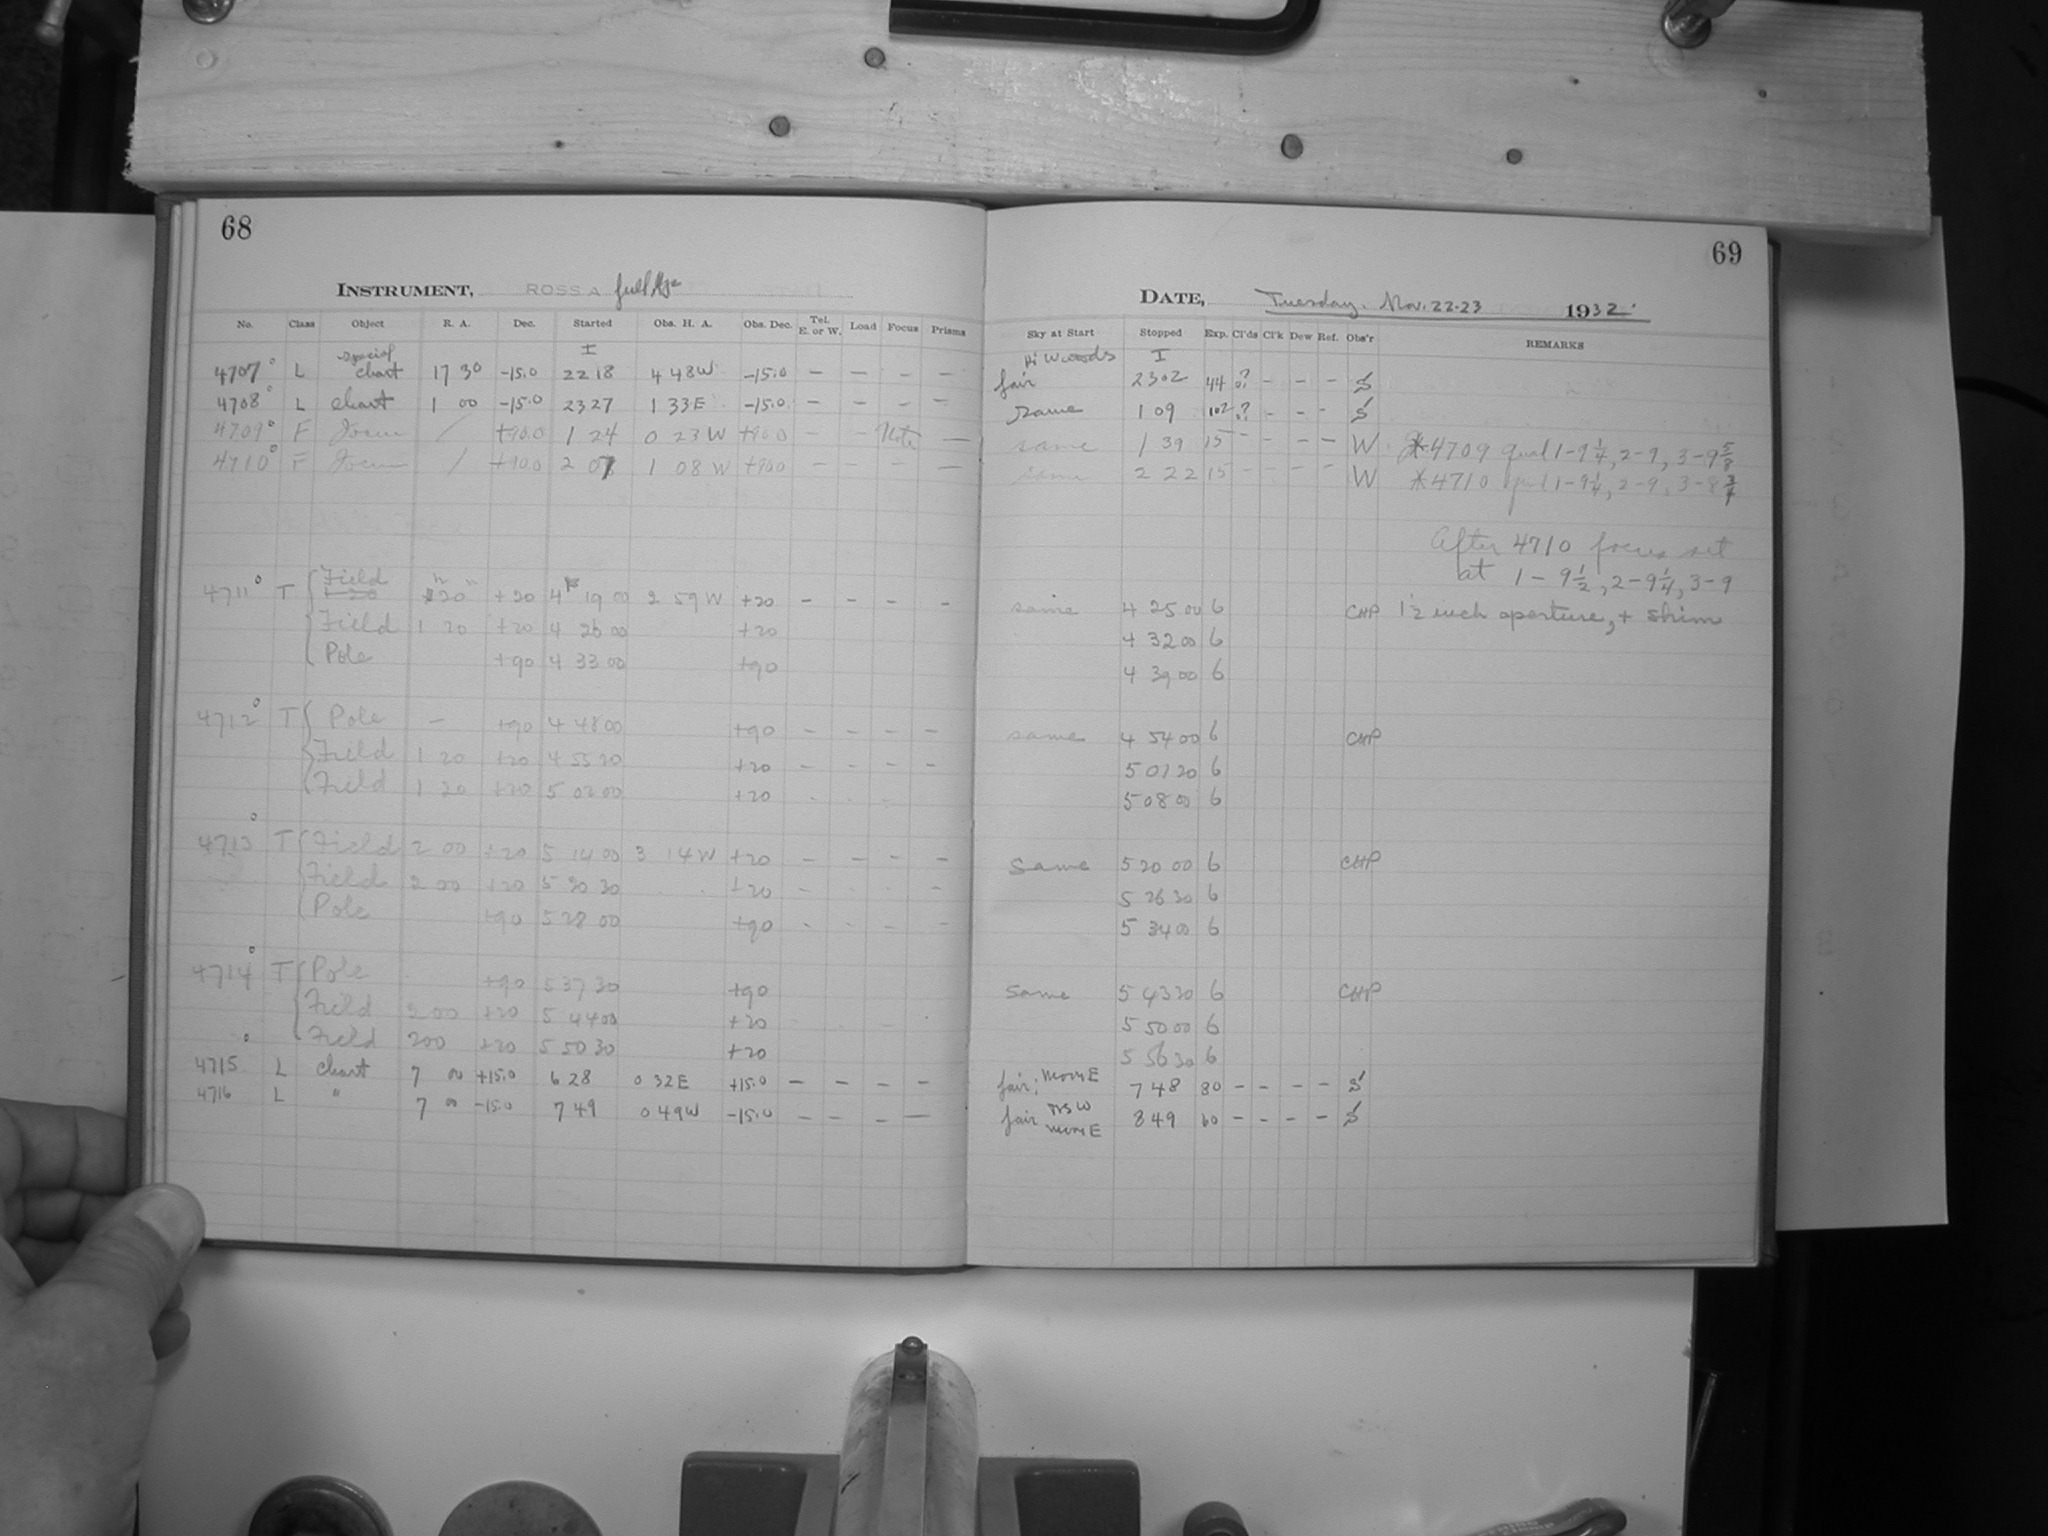 68
INSTRUMENT, ROSS A full
No. Class Object R. A. Dec. Started Obs. H. A. Obs. Dec. Tel. E. or W. Load Focus Prisms
I
4707° L special chart 17 30 -15.0 22 18 4 48 W -15.0 - - - -
4708° L chart 1 00 -15.0 23 27 1 33 E -15.0 - - - -
4709° F Focus / +90.0 1 24 0 23 W +90.0 - - Note -
4710° F Focus / +90.0 2 07 1 08 W +90.0 - - - -
4711° T Field 20 +20 4 19 00 2 59 W +20 - - - -
Field 1 20 +20 4 26 00 +20
Pole +90 4 33 00 +90
4712° T Pole - +90 4 48 00 +90 - - - -
Field 1 20 +20 4 55 20 +20 - - - -
Field 1 20 +20 5 02 00 +20
4713° T Field 2 00 +20 5 14 00 3 14 W +20 - - - -
Field 2 00 +20 5 20 30 +20 - - - -
Pole +90 5 28 00 +90 - - - -
4714° T Pole +90 5 37 30 +90
Field 2 00 +20 5 44 00 +20
Field 2 00 +20 5 50 30 +20
4715° L chart 7 00 +15.0 6 28 0 32 E +15.0 - - - -
4716 L " 7 00 -15.0 7 49 0 49 W -15.0 - - - -
69
DATE, Tuesday, Nov. 22-23 1932.
Sky at Start Stopped Exp. Cl'ds Cl'k Dew Ref. Obs'r REMARKS
I
fair 23 02 44 ? - - - S
Same 1 09 102 ? - - - S
same 1 39 15 - - - - W *4709 1-9¼, 2-9, 3-9⅝
same 2 22 15 - - - - W *4710 1-9¼, 2-9, 3-8¾
After 4710 focus set
at 1-9½, 2-9¼, 3-9
same 4 25 00 6 CHP 1½ inch aperture, + shim
4 32 00 6
4 39 00 6
same 4 54 00 6 CHP
5 01 20 6
5 08 00 6
Same 5 20 00 6 CHP
5 26 30 6
5 34 00 6
Same 5 43 30 6 CHP
5 50 00 6
5 56 30 6
fair; Moon E 7 48 80 - - - - S
fair Moon E 8 49 60 - - - - S